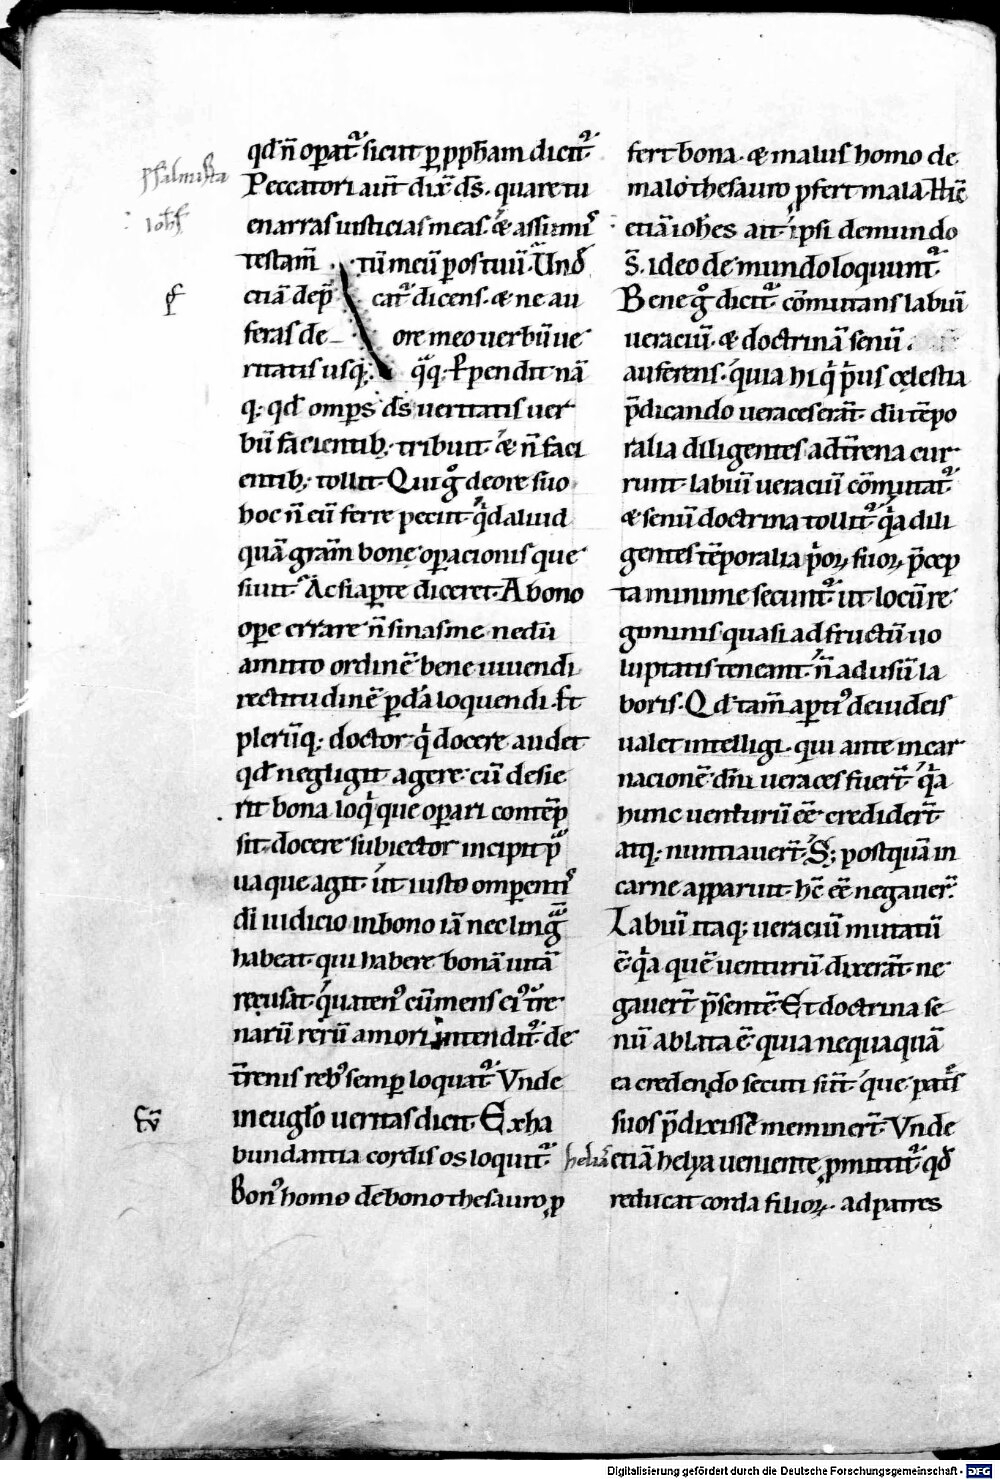 psalmista
Iob
qđ n̄ oꝑat᷑ sicut ꝑ ꝓph̄am dicit᷑
Peccatori aut̄ dix̄ ds̄. quare tu
enarras iusticias meas. & assumis
testam̄tū meū ꝑ os tuū. Unđ
etiā dep̄cat᷑ dicens. & ne au
feras de ore meo verbū ve
ritatis usq; q̄q;. Ꝑpendit nā
q; qđ omp̄s ds̄ veritatis ver
bū facientib; tribuit. & n̄ faci
entib; tollit. Qui gͦ de ore suo
hoc n̄ auferre peciit qͥd aliud
quā gr̄am bonę oꝑacionis que
siuit. Ac si aꝑte diceret. A bono
oꝑe errare n̄ sinas me. ne dū
amitto ordinē bene uiuendi
rectitudinē ꝑdā loquendi. Et
plerūq; doctor qͥ docere audet
qđ negligit agere. cū desie
rit bona loqͥ que oꝑari contēp
sit. docere subiectos incipit pͣ
ua que agit. ut iusto omp̄entis
dī iudicio in bono iā nec lingͣ̄
habeat. qui habere bonā uitā
recusat. qͣtenꝰ cū mens eiꝰ t̄re
narū rerū amori intendit᷑. de
t̄renis rebꝰ semꝑ loquat᷑. Vnde
in euḡlo veritas dicit. Ex ha
bundantia cordis os loquit᷑.
Bonꝰ homo de bono thesauro ꝓ
fert bona. & malus homo de
malo thesauro ꝓfert mala. Hīc
etiā ioh̄es ait. ipsi de mundo
s̄. ideo de mundo loquunt᷑.
Bene gͦ dicit᷑. cōmutans labiū
veraciū. & doctrinā senū
auferens. quia hi qͥ pͥus cęlestia
p̄dicando veraces erāt. dū tēpo
ralia diligentes ad t̄rena cur
runt. labiū veraciū cōmutat᷑
& senū doctrina tollit᷑. qͥa dili
gentes tēporalia pͥoꝝ suoꝝ p̄cep
ta minime secunt᷑. ut locū re
giminis quasi ad fructū uo
luptatis teneant. n̄ ad usū la
boris. Qđ tam̄ aꝑtiꝰ de iudeis
ualet intelligi. qui ante incar
nacionē dn̄i veraces fuer̄t. qͥa
hunc venturū eē crediderūt
atq; nuntiauer̄t. S; postquā in
carne apparuit. hc̄ eē negauer̄.
Labiū itaq; veraciū mutatū
ē. qͥa quē venturū dixerāt. ne
gauer̄t p̄sentē. Et doctrina se
nū ablata ē. quia nequaquā
ea credendo secuti sūt. que patͤs
suos p̄dixisse meminer̄t. Vnde
heliā
etiā helya veniente ꝓmittit᷑ qđ
reducat corda filioꝝ. ad patres